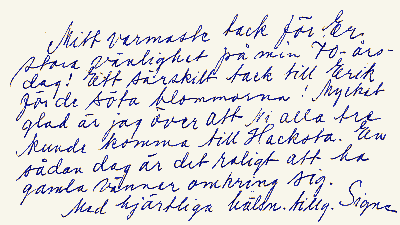 Mitt varmaste tack för Er
stora vänlighet på min 70-års-
dag! Ett särskilt tack till Erik
för de söta blommorna! Mycket
glad är jag över att Ni alla tre
kunde komma till Hacksta. En
sådan dag är det roligt att ha
gamla vänner omkring sig.
Med hjärtliga hälsn. tillg. Signe